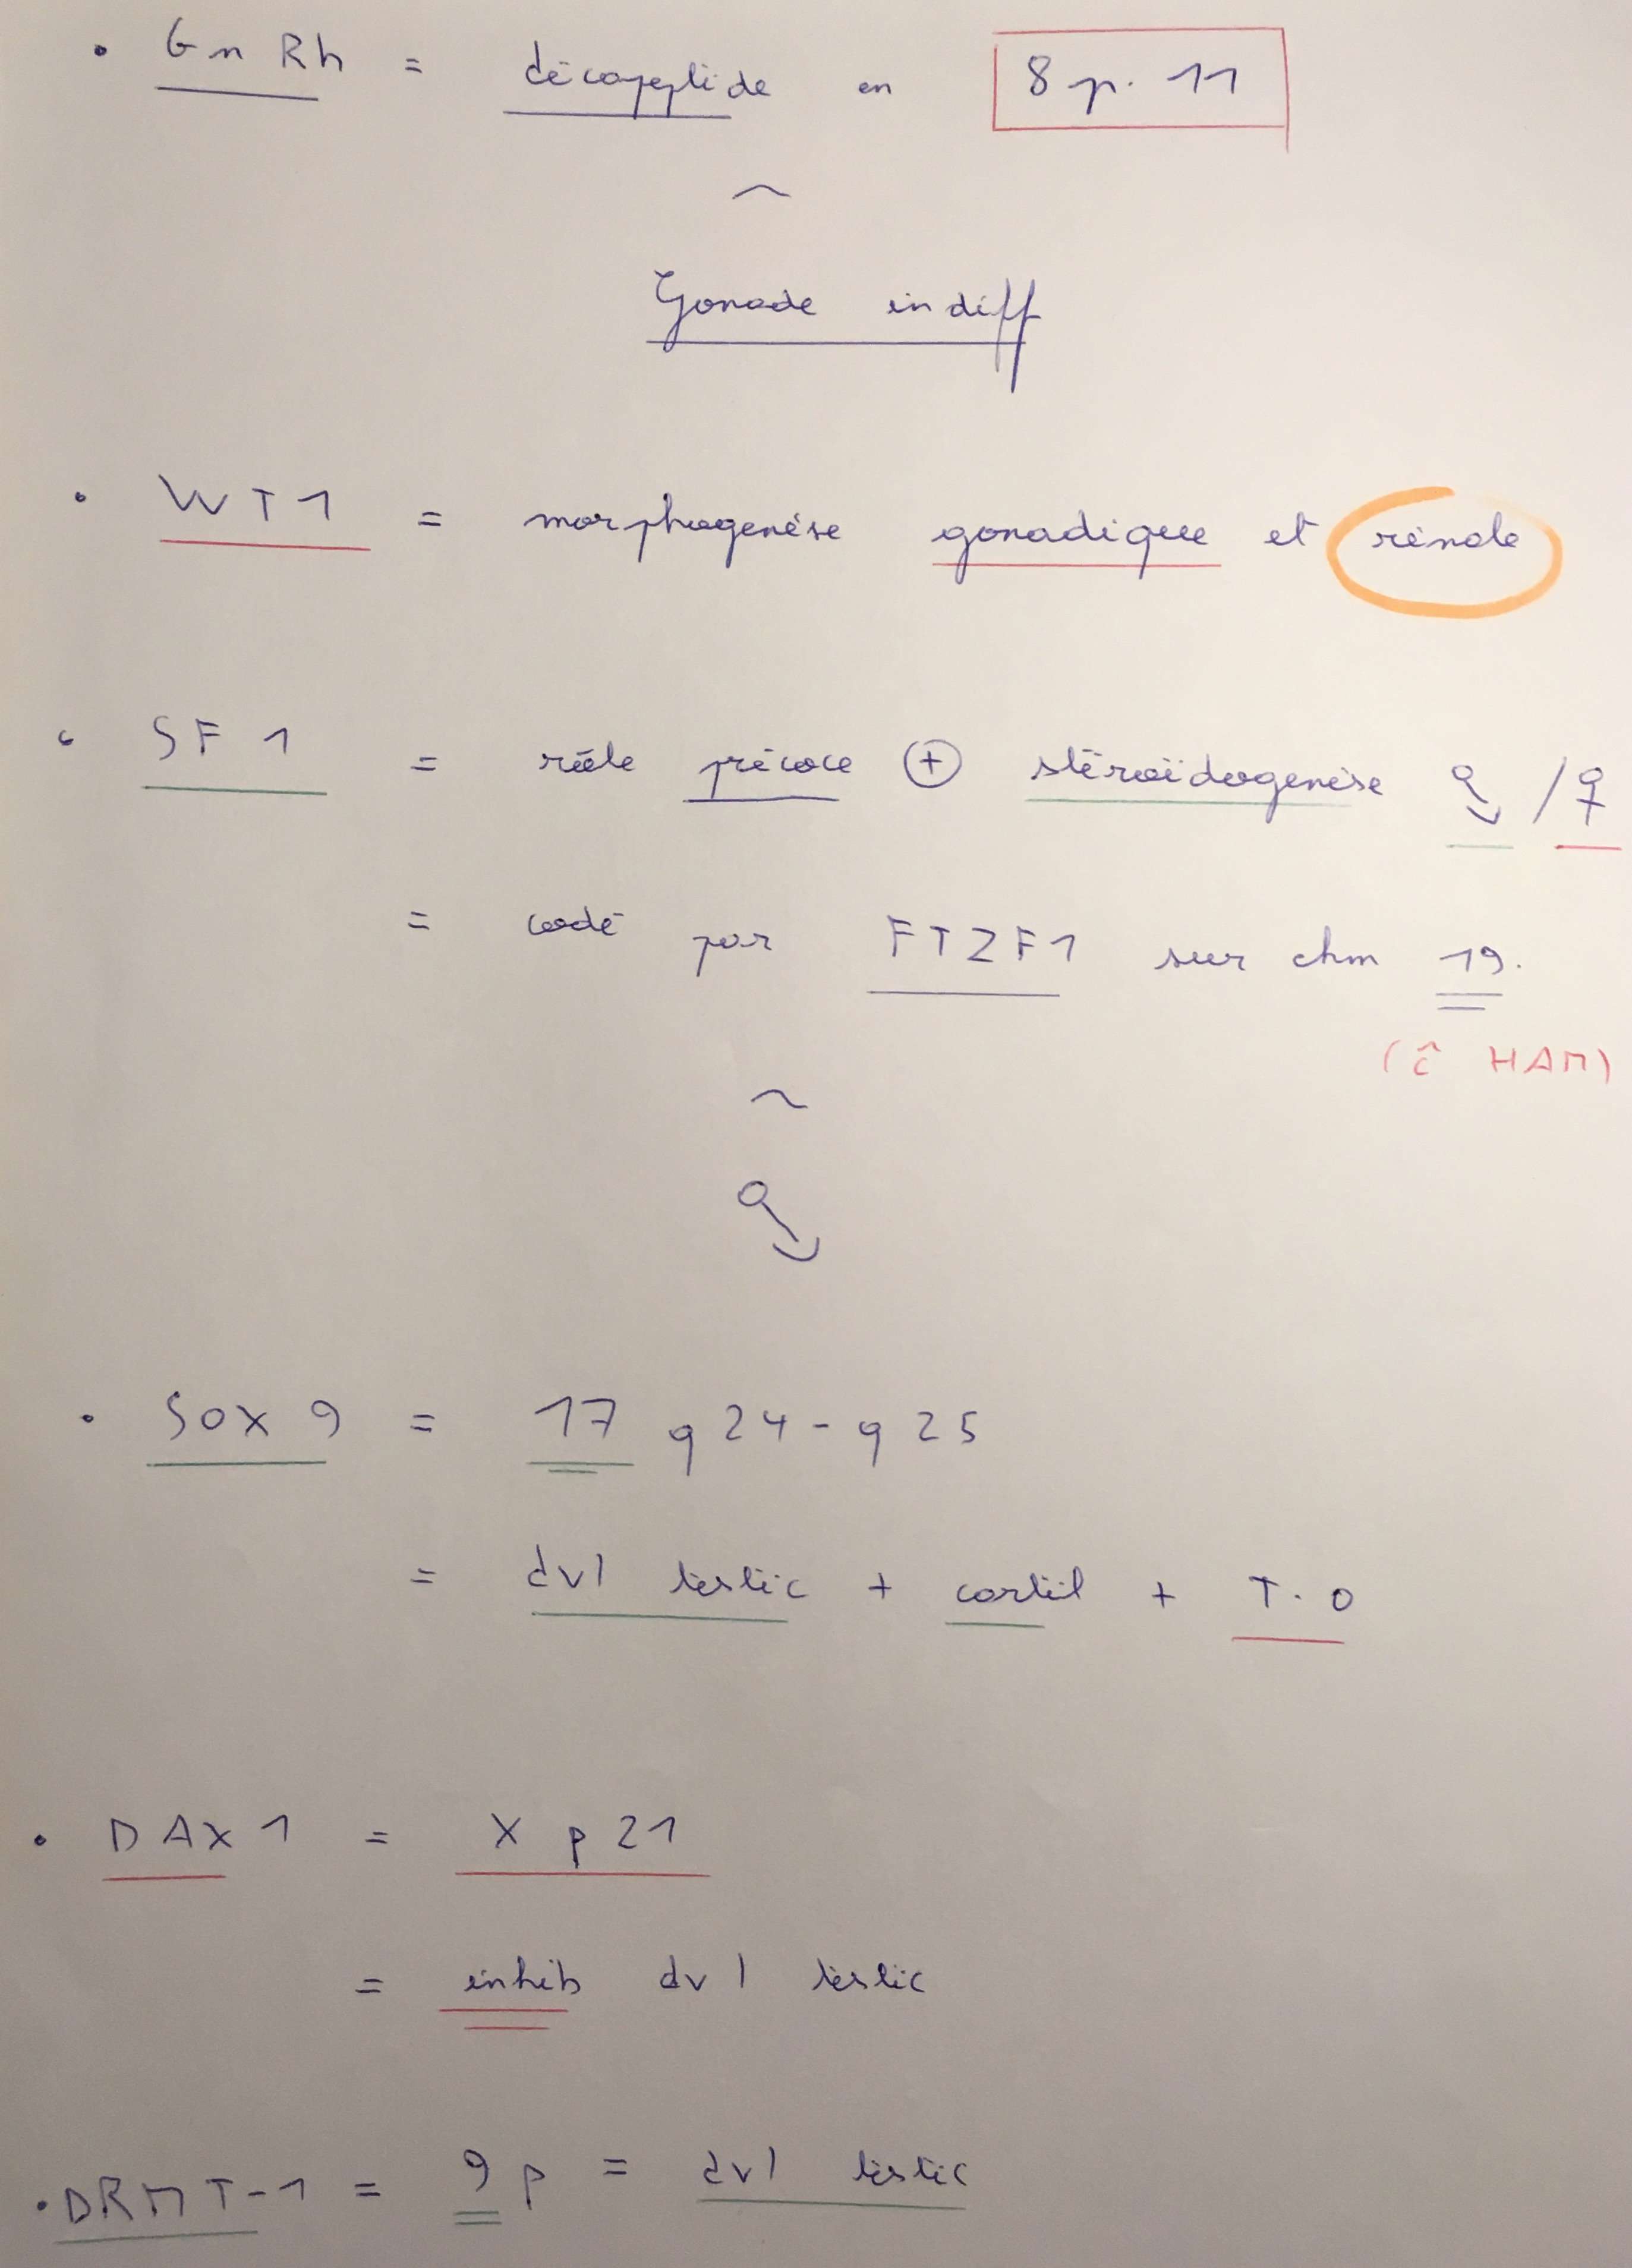 • GnRh = décapeptide en 8 p. 11
~
Gonade indiff
• WT1 = morphogenèse gonadique et rénale
• SF1 = rôle précoce ⊕ stéroïdogenèse ♂ / ♀
= codé par FTZF1 sur chm 19.
(c̄ HAM)
~
♂
• SOX 9 = 17 q24 - q25
= dvl testic + cortil + T.O
• DAX1 = X p21
= inhib dvl testic
• DRMT-1 = 9p = dvl testic